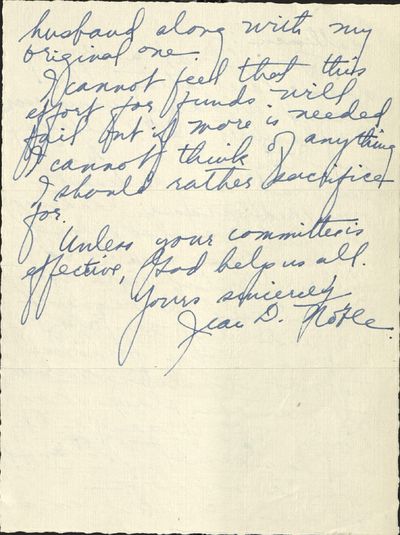 husband along with my
original one.
I cannot feel that this
effort for funds will
fail but if more is needed
I cannot think of anything
I should rather sacrifice
for.
Unless your committee is
effective, God help us all.
Yours sincerely
Jean D. Noble